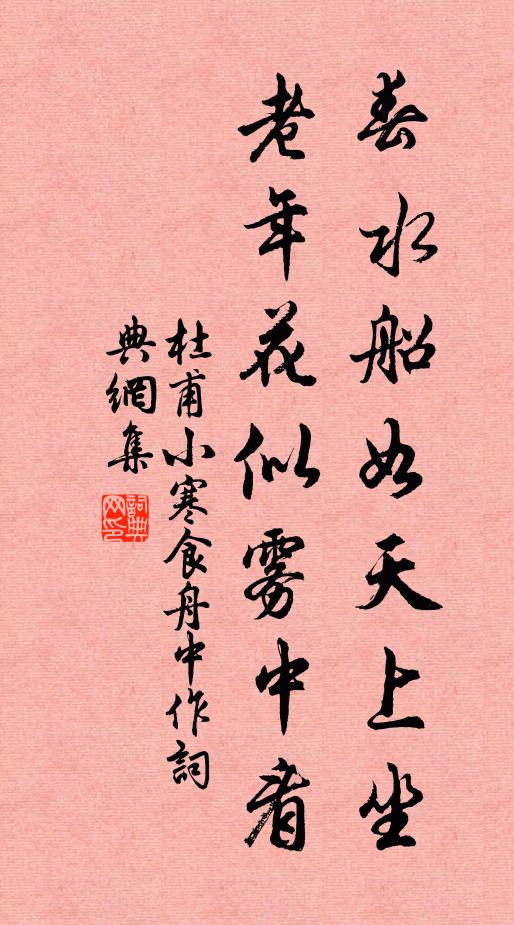 春水船如天上坐
老年花似雾中看
杜甫小寒食舟中作詞
典網集
詞典网印